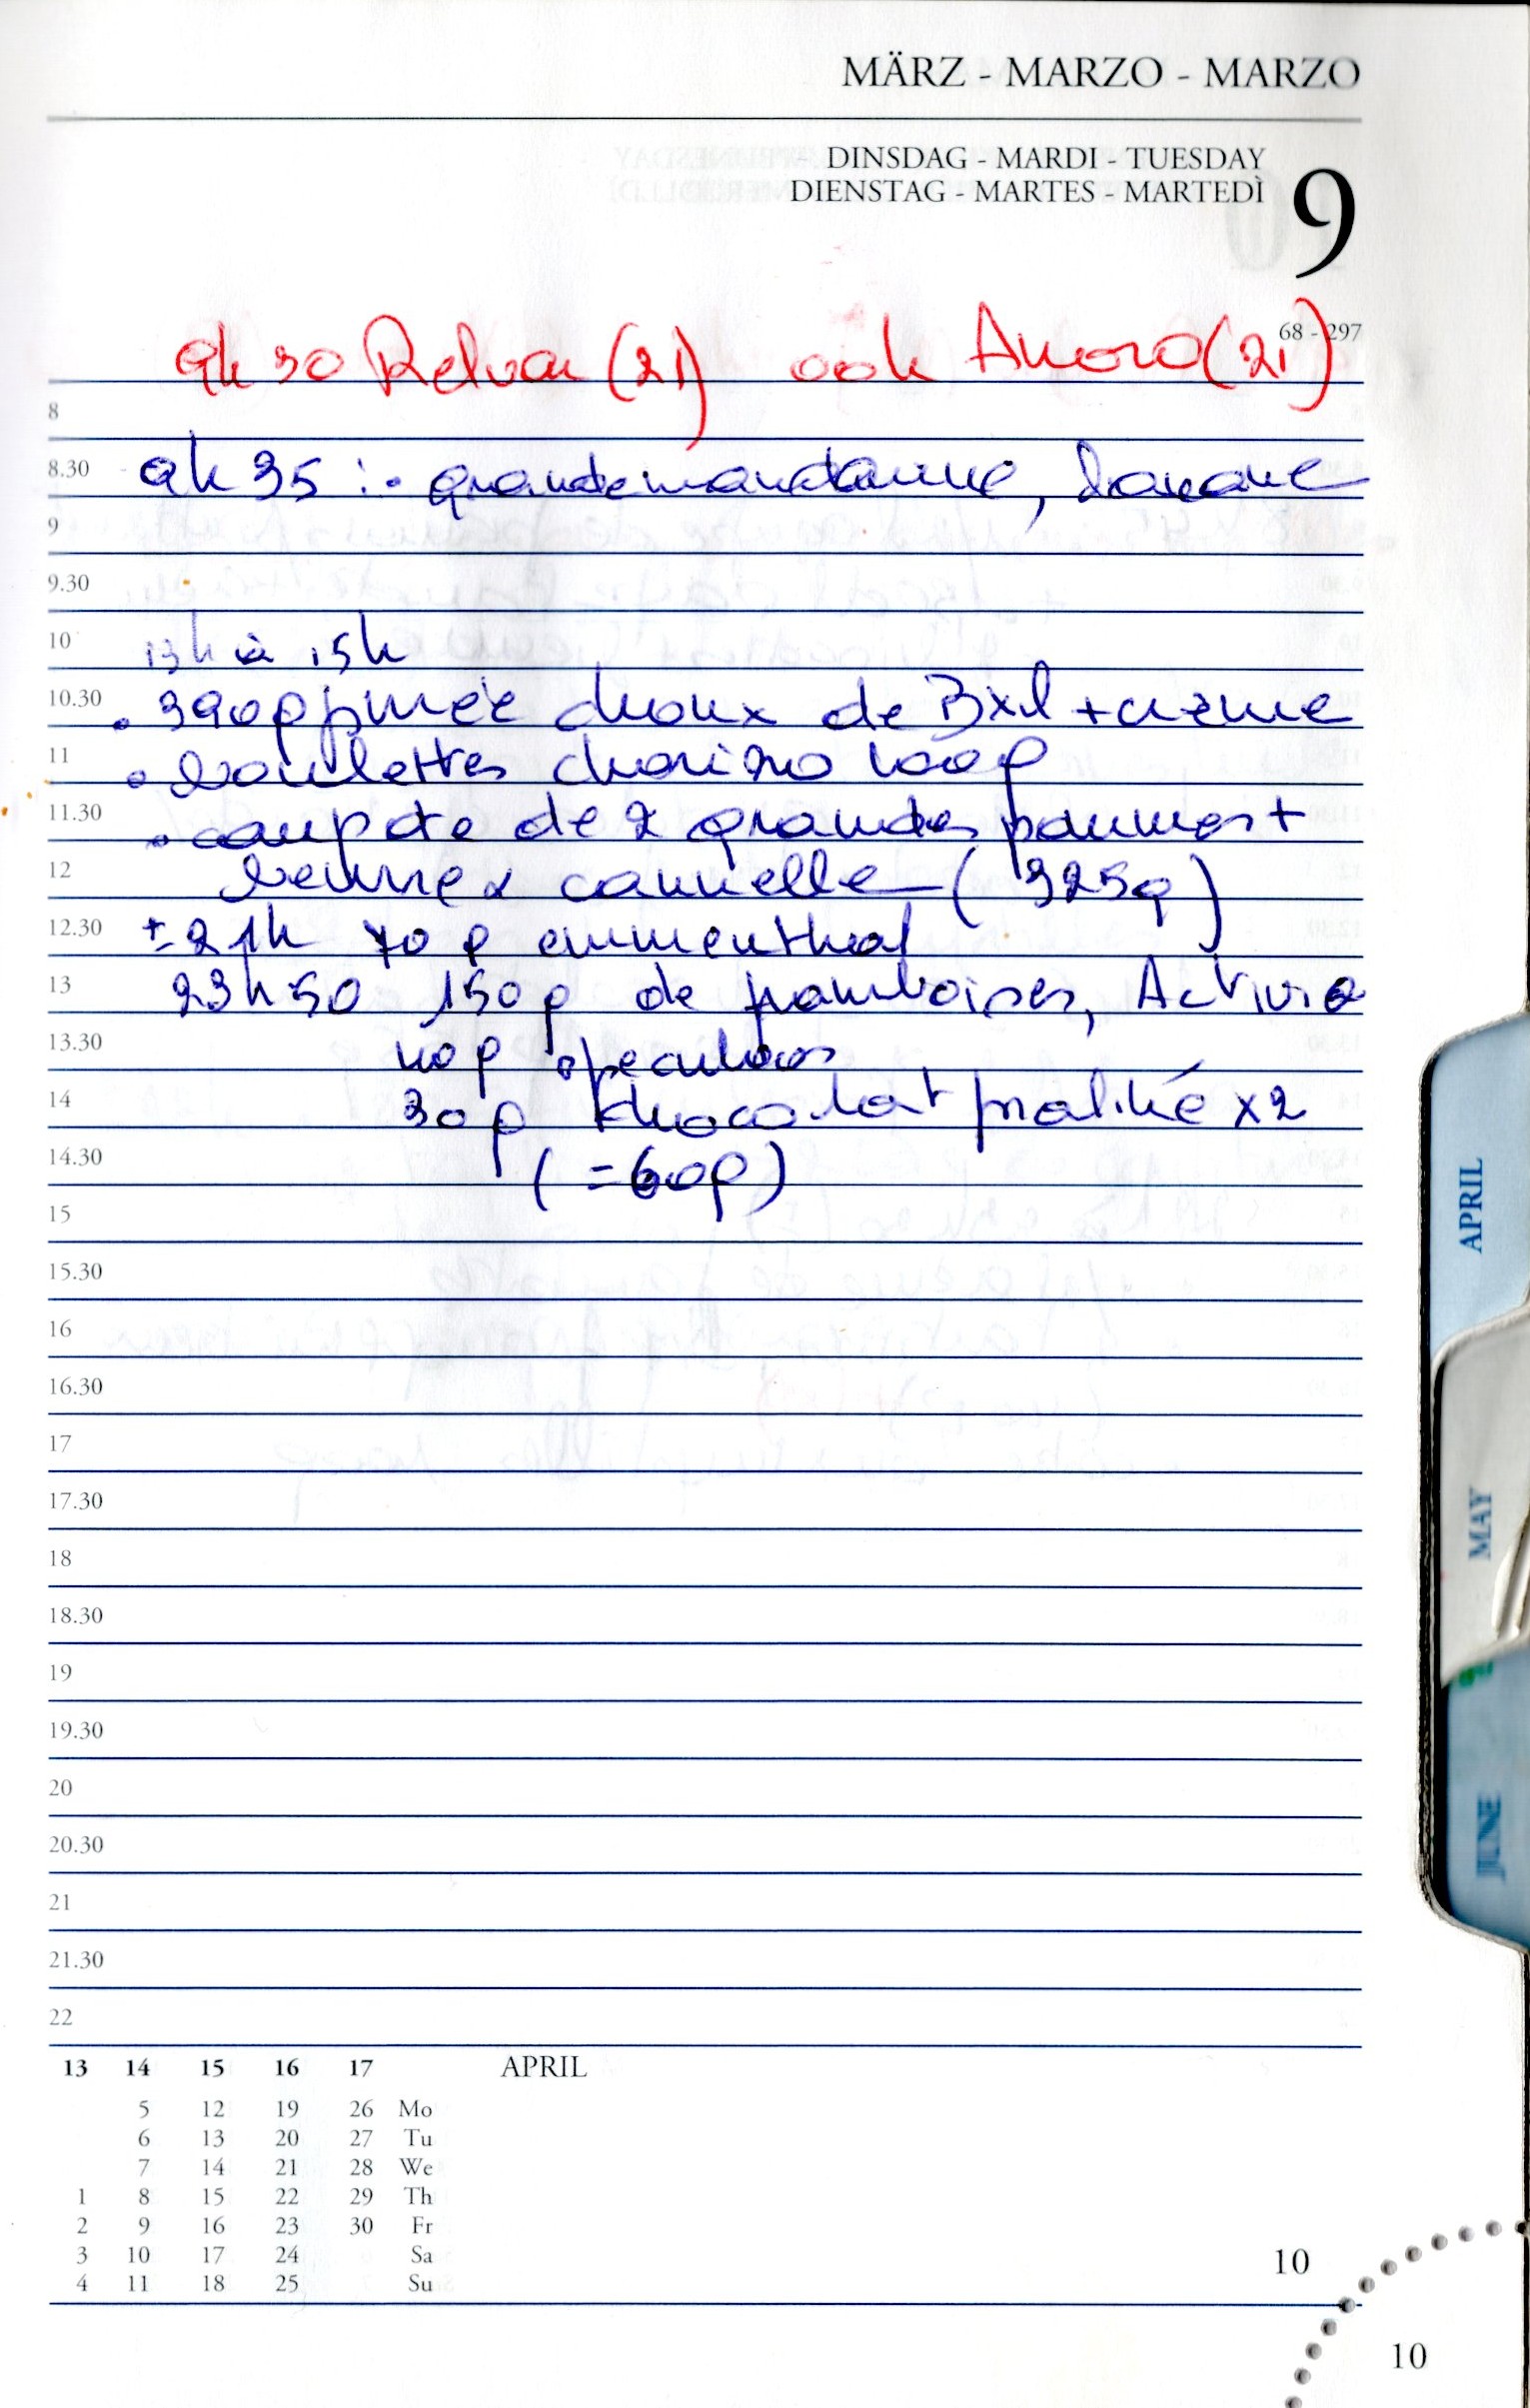 MÄRZ - MARZO - MARZO
DINSDAG - MARDI - TUESDAY
DIENSTAG - MARTES - MARTEDÌ
9
68 - 297
9h30 Relvar (21) ook Anoro (21)
8
8.30 9h35 : • grande mandarine, banane
9
9.30
10 13h à 15h
10.30 • 390g purée choux de Bxl + crème
11 • boulettes chorizo 100g
11.30 • compote de 2 grandes pommes +
12 beurre & cannelle (325g)
12.30 ± 21h 70g emmenthal
13 23h50 150g de framboises, Activia
13.30 40g speculoos
14 30g chocolat praliné x2
14.30 (=60g)
15
15.30
16
16.30
17
17.30
18
18.30
19
19.30
20
20.30
21
21.30
22
13 14 15 16 17 APRIL
5 12 19 26 Mo
6 13 20 27 Tu
7 14 21 28 We
1 8 15 22 29 Th
2 9 16 23 30 Fr
3 10 17 24 Sa
4 11 18 25 Su
10
10
APRIL
MAY
JUNE